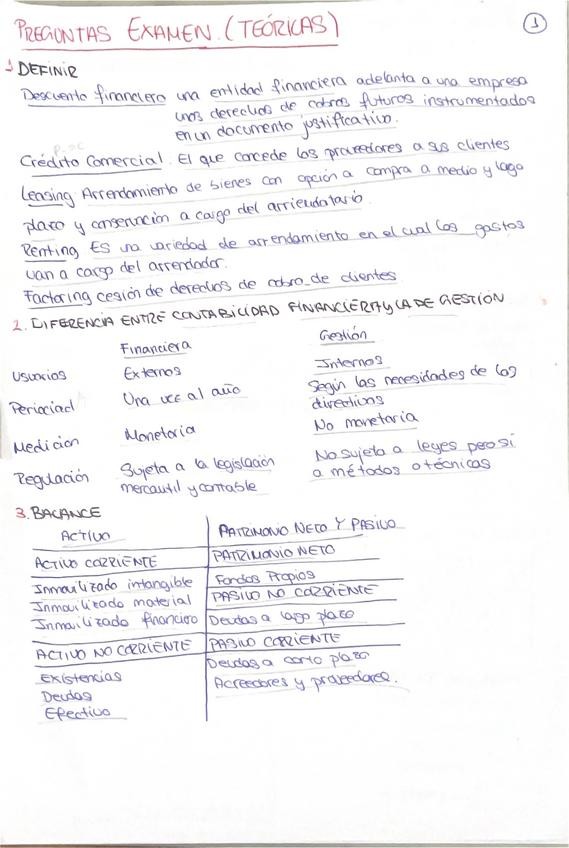 PREGUNTAS EXAMEN. (TEÓRICAS)
1
1 DEFINIR
Descuento financiero una entidad financiera adelanta a una empresa
unos derechos de cobros futuros instrumentados
en un documento justificativo.
Crédito Comercial. El que concede los proveedores a sus clientes
Leasing Arrendamiento de bienes con opción a compra a medio y largo
plazo y conservación a cargo del arriendatario.
Renting Es una variedad de arrendamiento en el cual los gastos
van a cargo del arrendador.
Factoring cesión de derechos de cobro de clientes
2. DIFERENCIA ENTRE CONTABILIDAD FINANCIERA Y LA DE GESTIÓN
Financiera Gestión
Usuarios Externos Internos
Periocidad Una vez al año Según las necesidades de los
directivos
Medición Monetaria No monetaria
Regulación Sujeta a la legislación No sujeta a leyes pero si
mercantil y contable a métodos o técnicas
3. BALANCE
ACTIVO PATRIMONIO NETO Y PASIVO
ACTIVO CORRIENTE PATRIMONIO NETO
Inmovilizado intangible Fondos Propios
Inmovilizado material PASIVO NO CORRIENTE
Inmovilizado financiero Deudas a largo plazo
ACTIVO NO CORRIENTE PASIVO CORRIENTE
Existencias Deudas a corto plazo
Deudas Acreedores y proveedores.
Efectivo